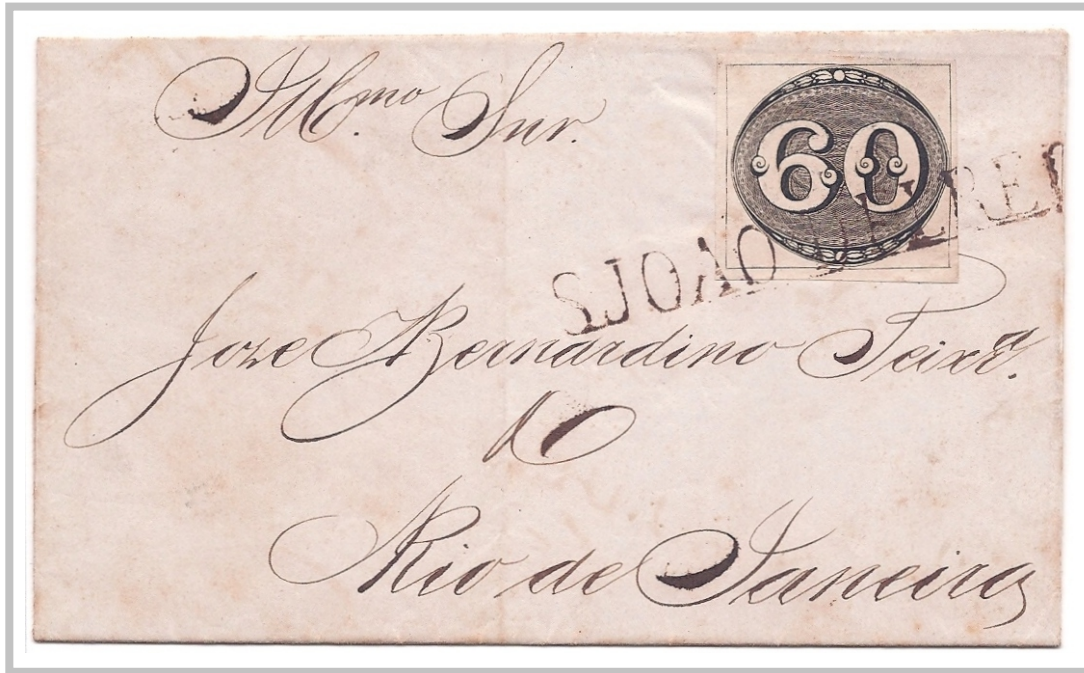 Ill.mo Snr.
60
S JOAO DEL REI
Joze Bernardino Teixr.a
Rio de Janeiro